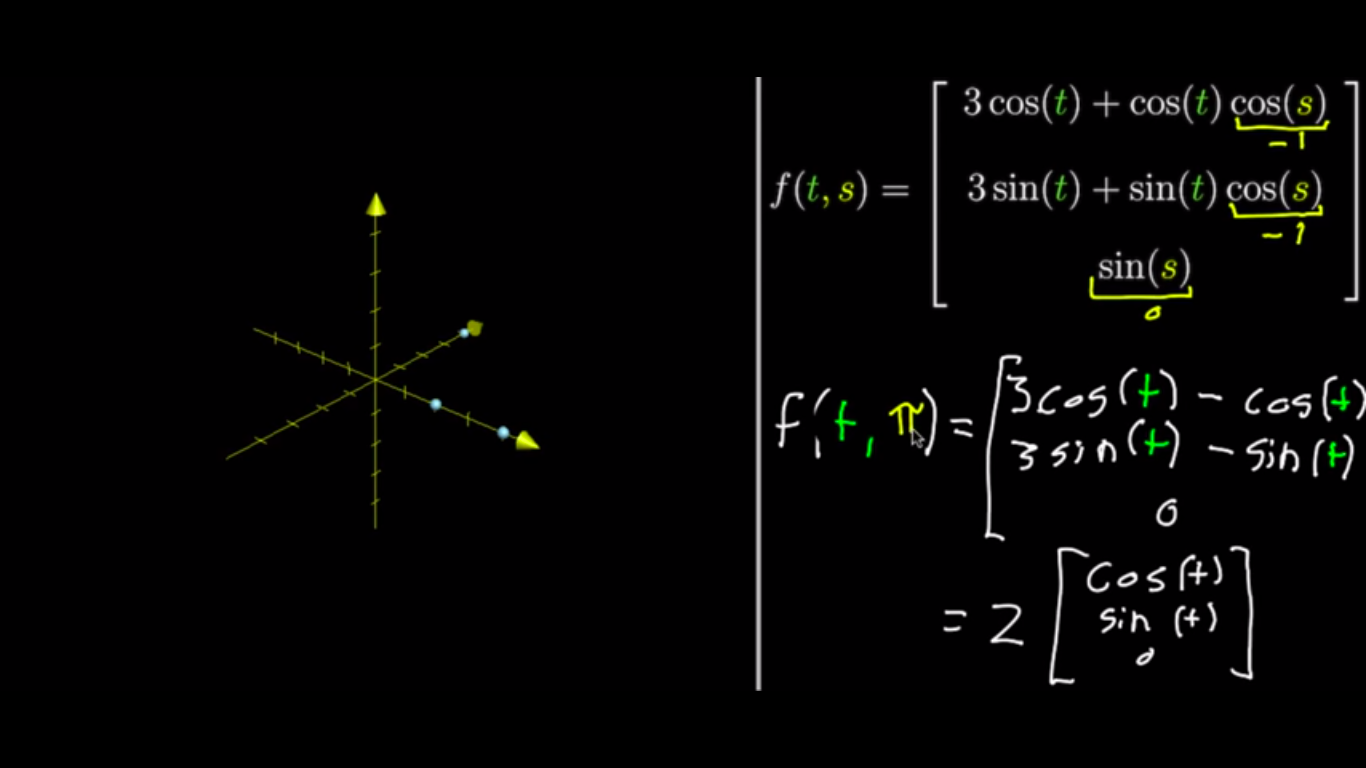 f(t, s) =
3 cos(t) + cos(t) cos(s)
-1
3 sin(t) + sin(t) cos(s)
-1
sin(s)
0
f(t, π) =
3cos(t) - cos(t)
3 sin(t) - sin(t)
0
= 2
cos(t)
sin(t)
0